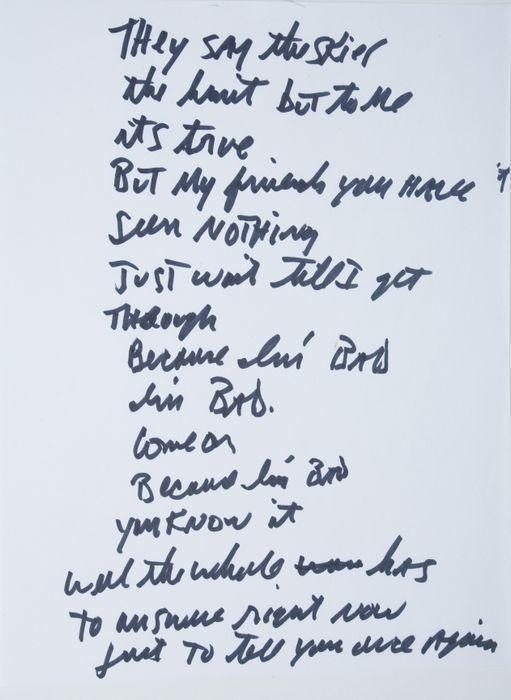 They say the skies
the limit but to me
its true
But My friends you HAVE 't
seen NOTHing
JusT wait till I get
Through
Because Im' BAD
Im BAD.
Come on
Because Im' BAD
you KNOW it
well the whole has
To answer right Now
just To tell you once Again